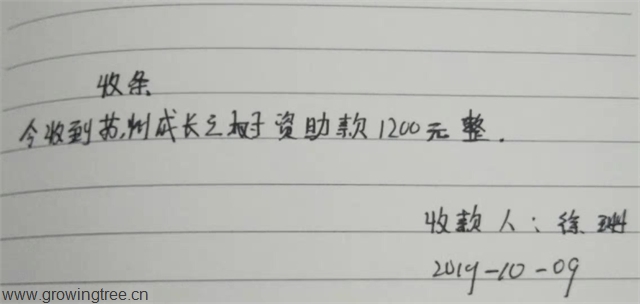 收条
今收到苏州成长之树资助款1200元整.
收款人：徐珊
2019-10-09
www.growingtree.cn